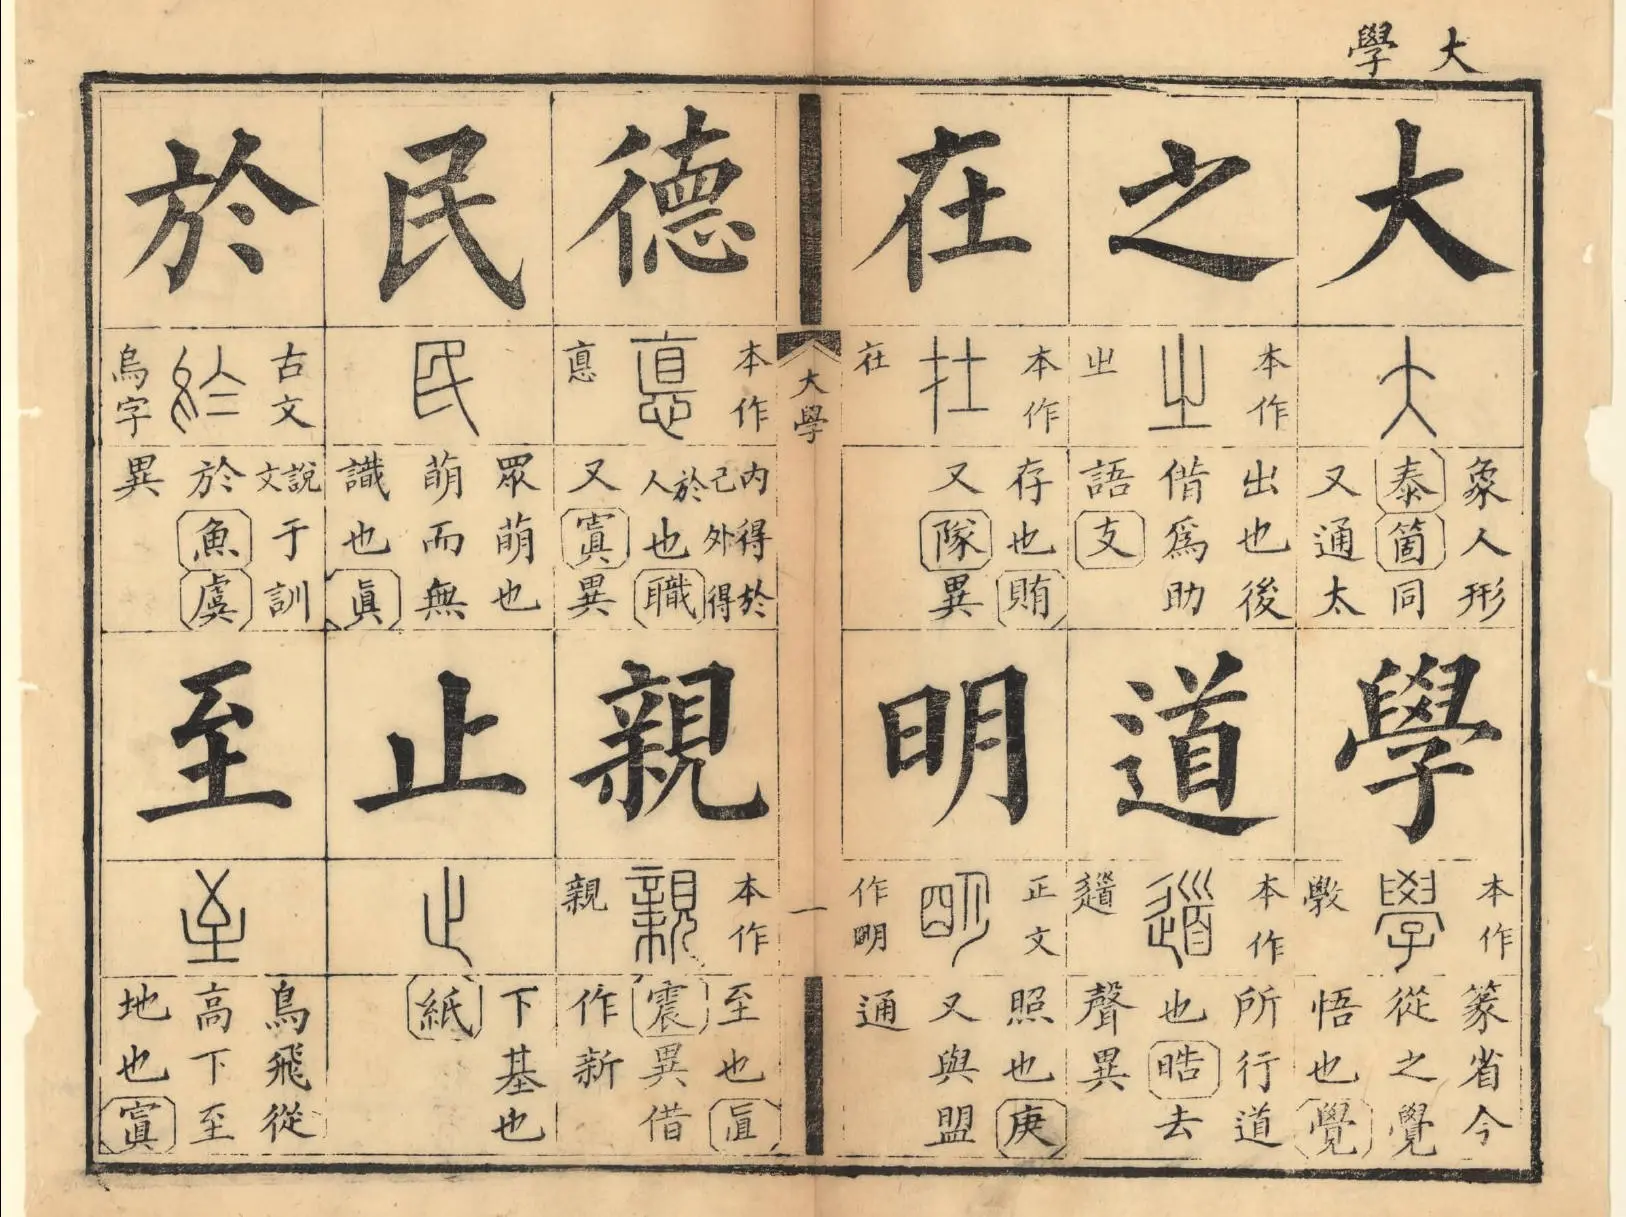 大學
大
象人形
泰箇同
又通太
學
本作斆
篆省今
從之覺
悟也覺
之
本作㞢
出也後
借爲助
語支
道
本作𨕥
所行道
也晧去
聲異
在
本作在
存也賄
又隊異
明
正文作明
照也庚
又與盟
通
大學
一
德
本作悳
内得於己外得於人也職
又寘異
親
本作親
至也眞
震異借
作新
民
眾萌也
萌而無
識也眞
止
下基也
紙
於
古文烏字
說文于訓
於魚虞
異
至
鳥飛從
高下至
地也寘